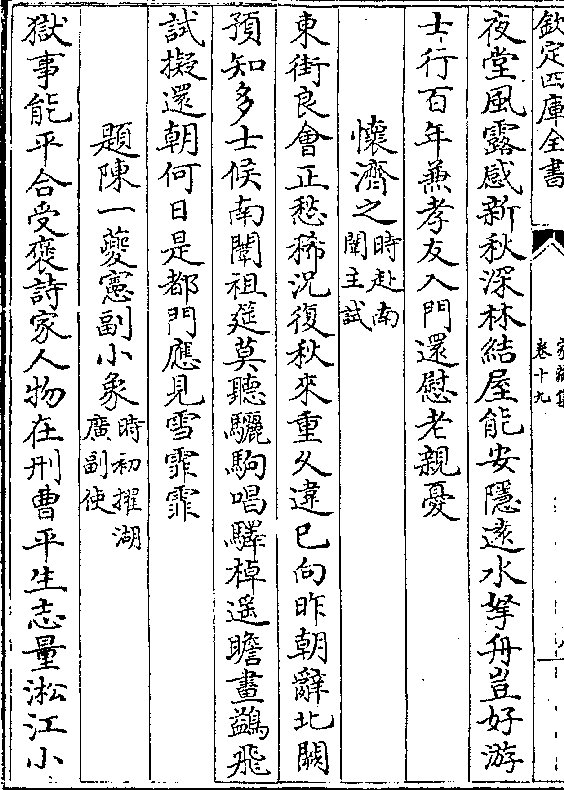 欽定四庫全書
家藏集
卷十九
夜堂風露感新秋深林結屋能安隱遠水拏舟豈好游
士行百年兼孝友入門還慰老親憂
懷濟之時赴南闈主試
東街良會正愁稀況復秋來重久違已向昨朝辭北闕
預知多士候南闈祖筵莫聽驪駒唱驛棹遥瞻畫鷁飛
試擬還朝何日是都門應見雪霏霏
題陳一夔憲副小象時初擢湖廣副使
獄事能平合受褒詩家人物在刑曹平生志量淞江小